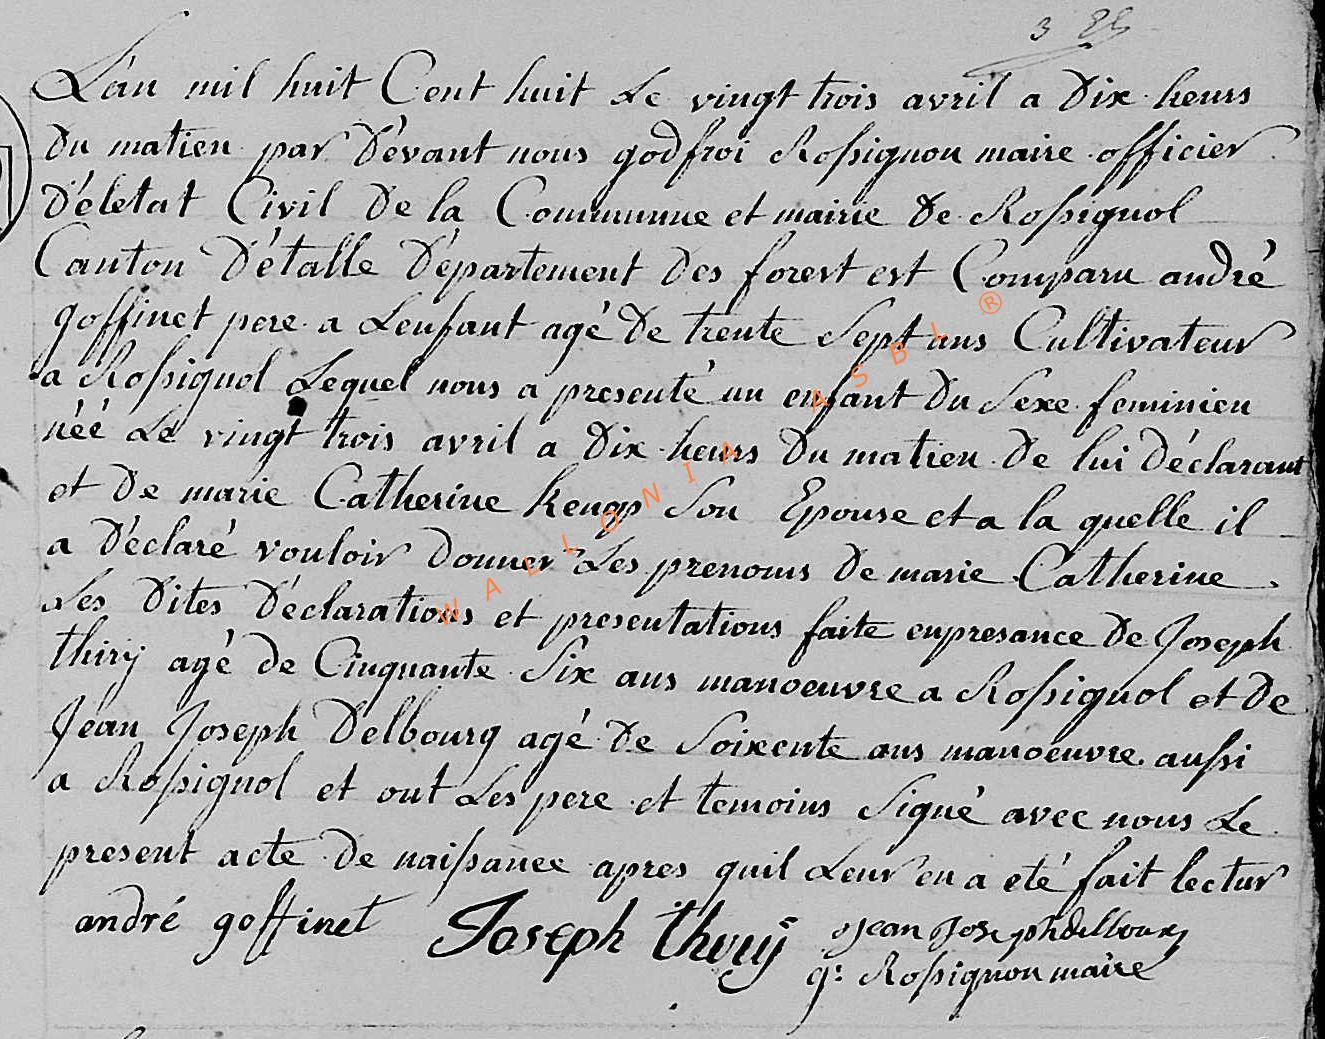 L'an mil huit Cent huit Le vingt trois avril a Dix heurs
Du matien par Dévant nous godfroi Roßignon maire officier
D'életat Civil De la Communne et mairie De Roßignol
Canton D'étalle Département Des forest est Comparu andré
goffinet pere a Lenfant agé De trente Sept ans Cultivateur
a Roßignol Lequel nous a presenté un enfant Du Sexe feminien
néé Le vingt trois avril a Dix heurs Du matien De lui Déclarant
et De marie Catherine Son Epouse et a la quelle il
a Déclaré vouloir Donner Les prenoms De marie Catherine
Les Dites Déclarations et presentations faite enpresance De Joseph
thiry agé de Cinquante Six ans manoeuvre a Roßignol et De
Jean Joseph Delbourg agé De Soixente ans manoeuvre außi
a Roßignol et ont Les pere et temoins Signé avec nous Le
present acte De naißance apres quil Leur en a été fait lectur
andré goffinet Joseph thiry Jean Joseph delbourg
g: Roßignon maire
WALLONIA ASBL ®